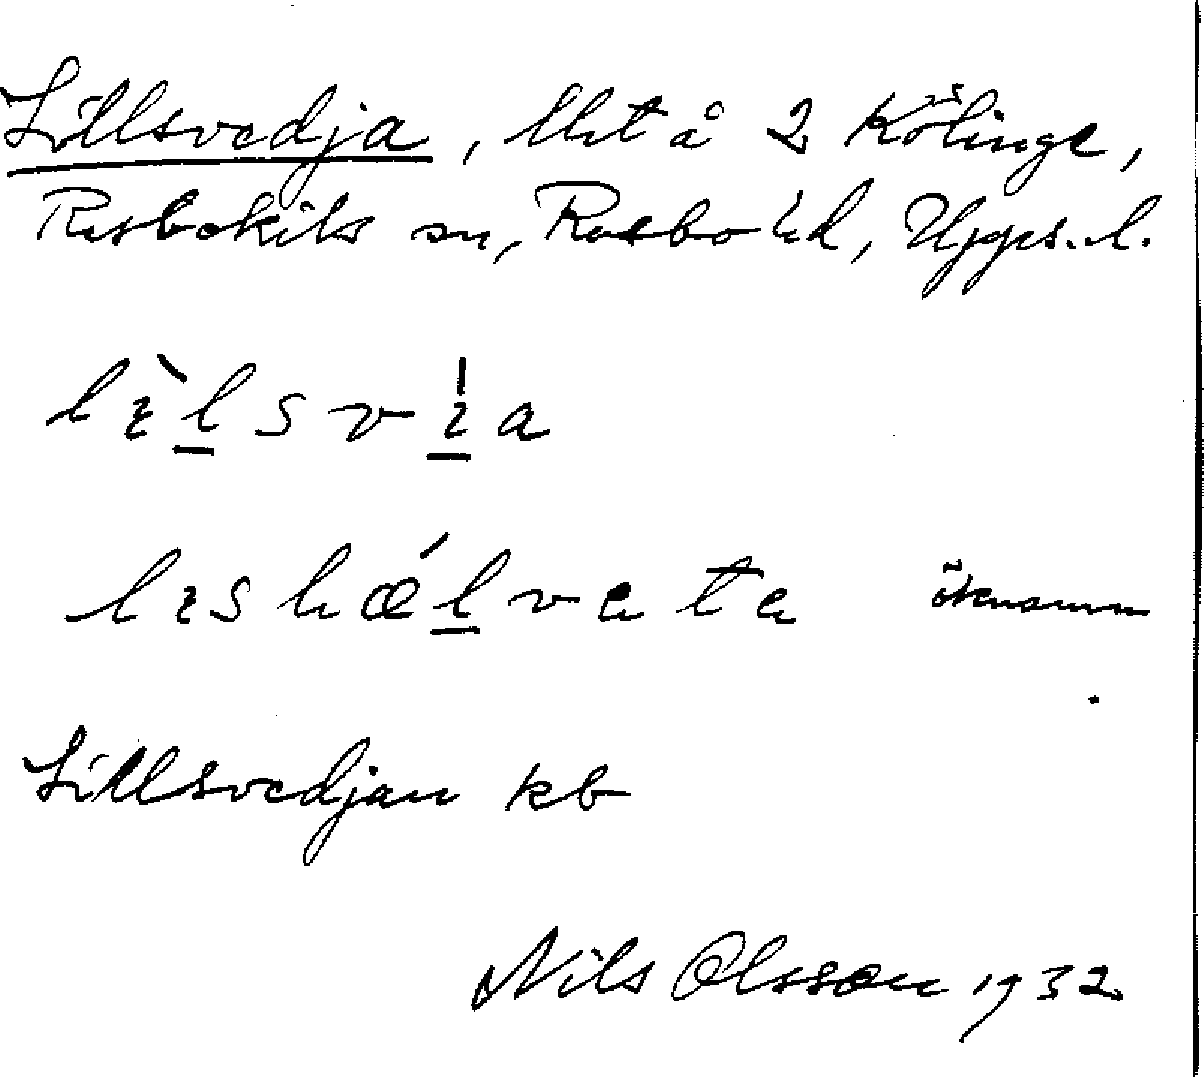 Lillsvedja, lht å 2 Kölinge,
Rasbokils sn, Rasbo hd, Upps. l.
lɩ̀lsvɩ́a
lɩshǽlvete öknamn
Lillsvedjan kb
Nils Olsson 1932